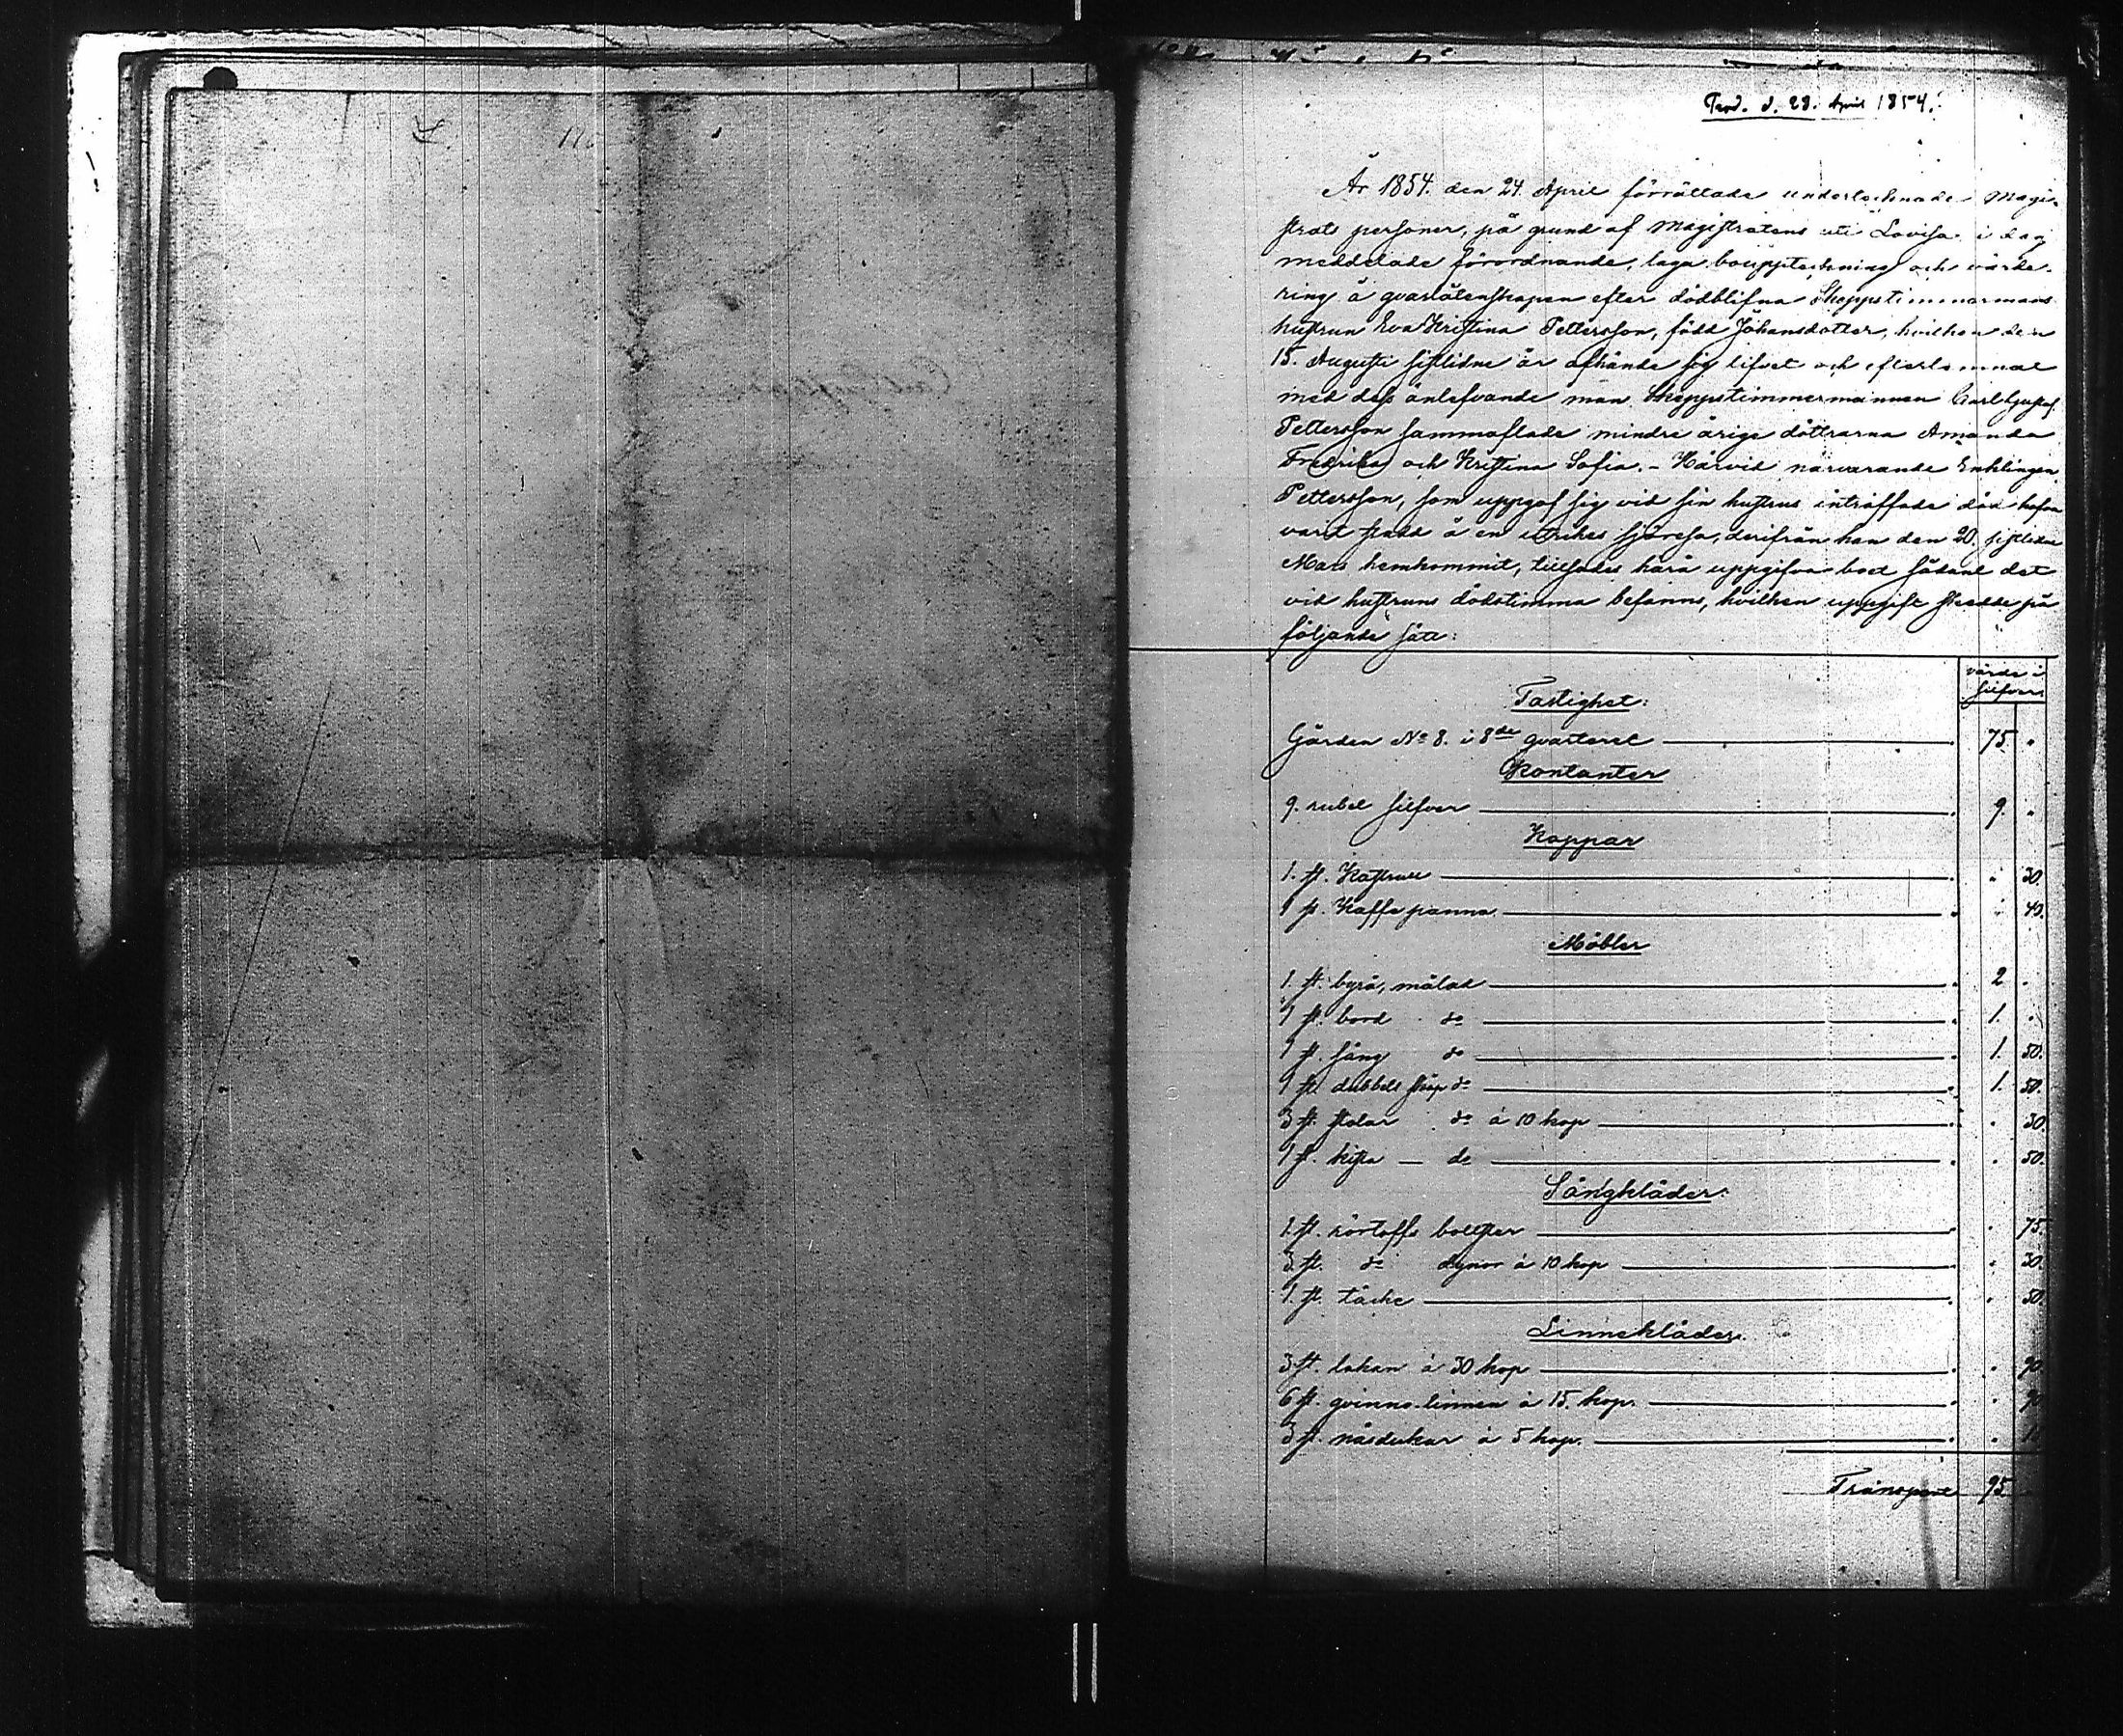 d. 28. April 1854.
År 1854. den 24. April förrättade undertecknade Magi-
strats personer, på grund af Magistratens uti Lovisa i dag
meddelade förordnande, laga bouppteckning och värde-
ring å qvarlåtenskapen efter dödblifna Skeppstimmermans
hustrun Eva Kristina Pettersson, född Johansdotter, hvilken den
15. Augusti sistlidne år afhände sig lifvet och efterlemnat
med dess änlefvande man Skeppstimmermannen Carl Gustaf
Pettersson sammaflade mindre åriga döttrarna Amanda
Fredrika och Kristina Sofia. - Härvid närvarande Enklingen
Pettersson, som uppgaf sig vid sin hustrus inträffade död hafva
varit stadd å en utrikes sjöresa, derifrån han den 20. sistlidne
Mars hemkommit, tillsades härå uppgifva boet sådant det
vid hustruns dödstimma befanns, hvilken uppgift skedde på
följande sätt:
värde i
silfver.
Fastighet:
Gården No 8. i 8de qvarteret 75. "
Kontanter
9. rubel silfver 9. "
Koppar
1. st. Kastrull " 30.
1 st. Kaffe panna " 40.
Möbler
1. st. byrå, målad 2 "
1 st. bord do 1. "
1 st. säng do 1. 50.
1 st. dubbelt skåp do 1. 50.
3 st. stolar do à 10 kop " 30.
1 st. kista — do " 50.
Sängkläder:
1 st. bolster " 75.
3 st. do dynor à 10 kop " 30.
1. st. täcke " 50.
Linnekläder.
3 st. lakan à 30 kop " 90
6 st. qvinns-linnen à 15. kop. " 90
3 st. näsdukar à 5 kop. "
Transport 95